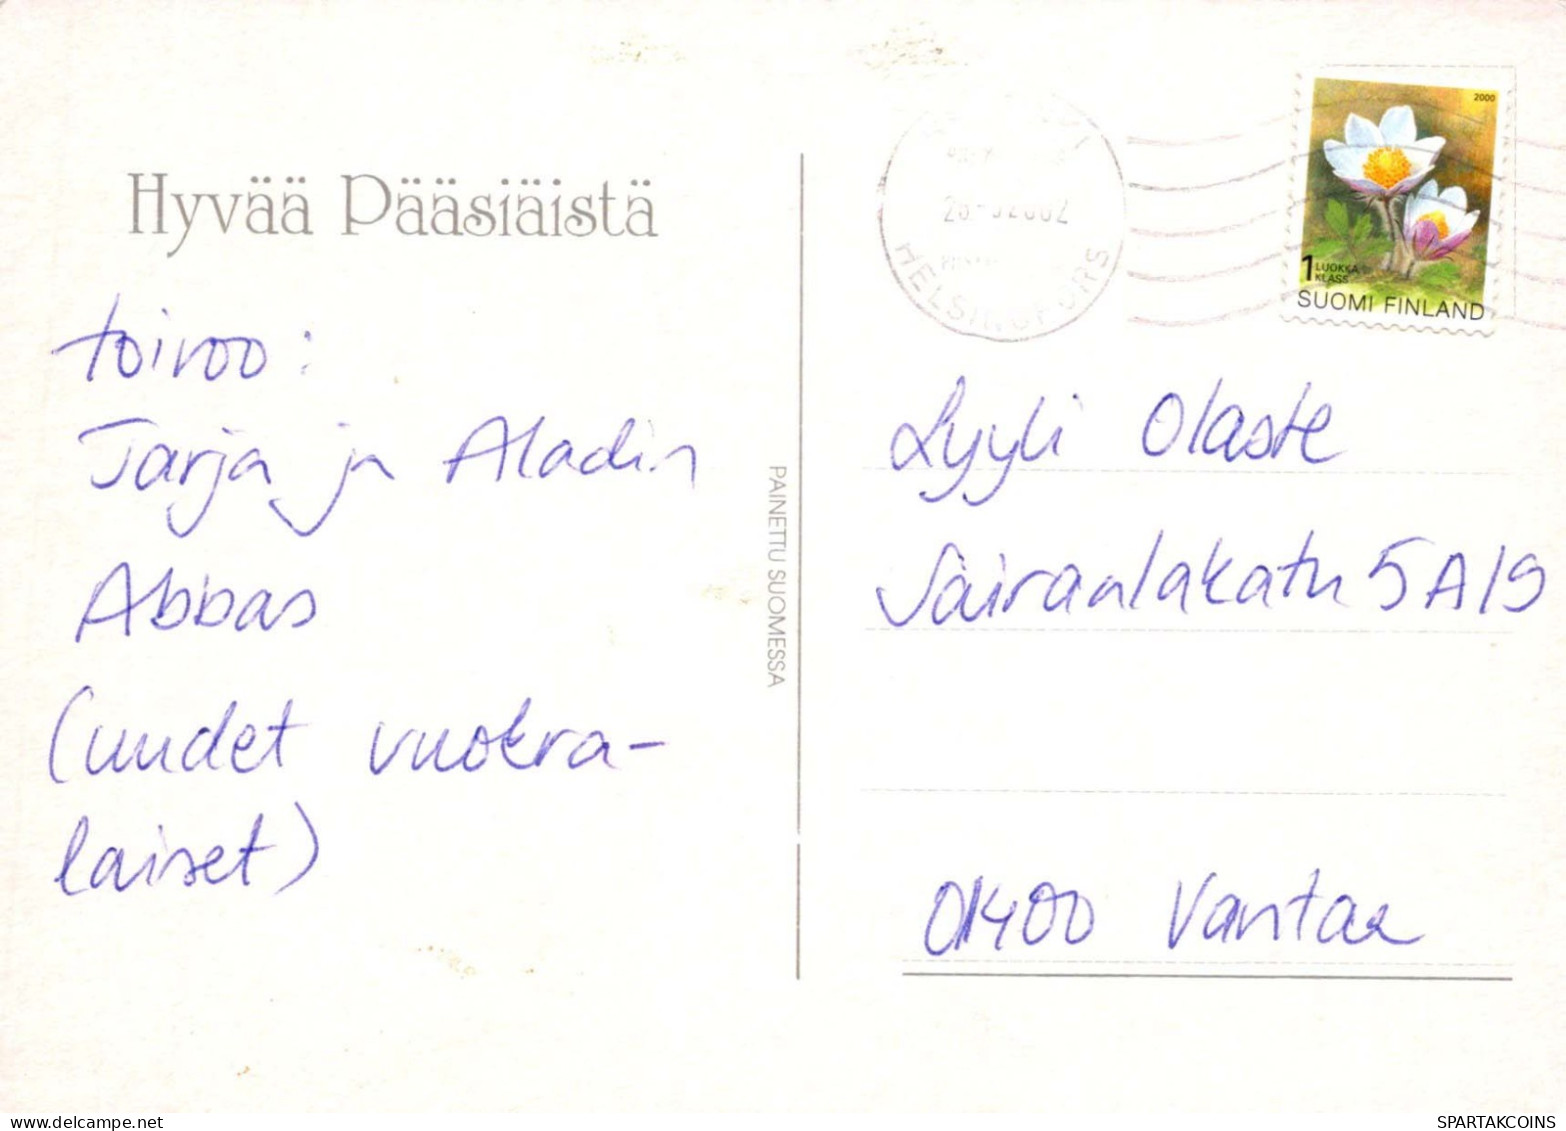 Hyvää Pääsiäistä
toivoo:
Tarja ja Aladin
Abbas
(uudet vuokra-
laiset)
PAINETTU SUOMESSA
HELSINGFORS
2000
1 LUOKKA
KLASS
SUOMI FINLAND
Lyyli Olaste
Sairaalakatu 5 A 19
01400 Vantaa
SPARTAKCOINS